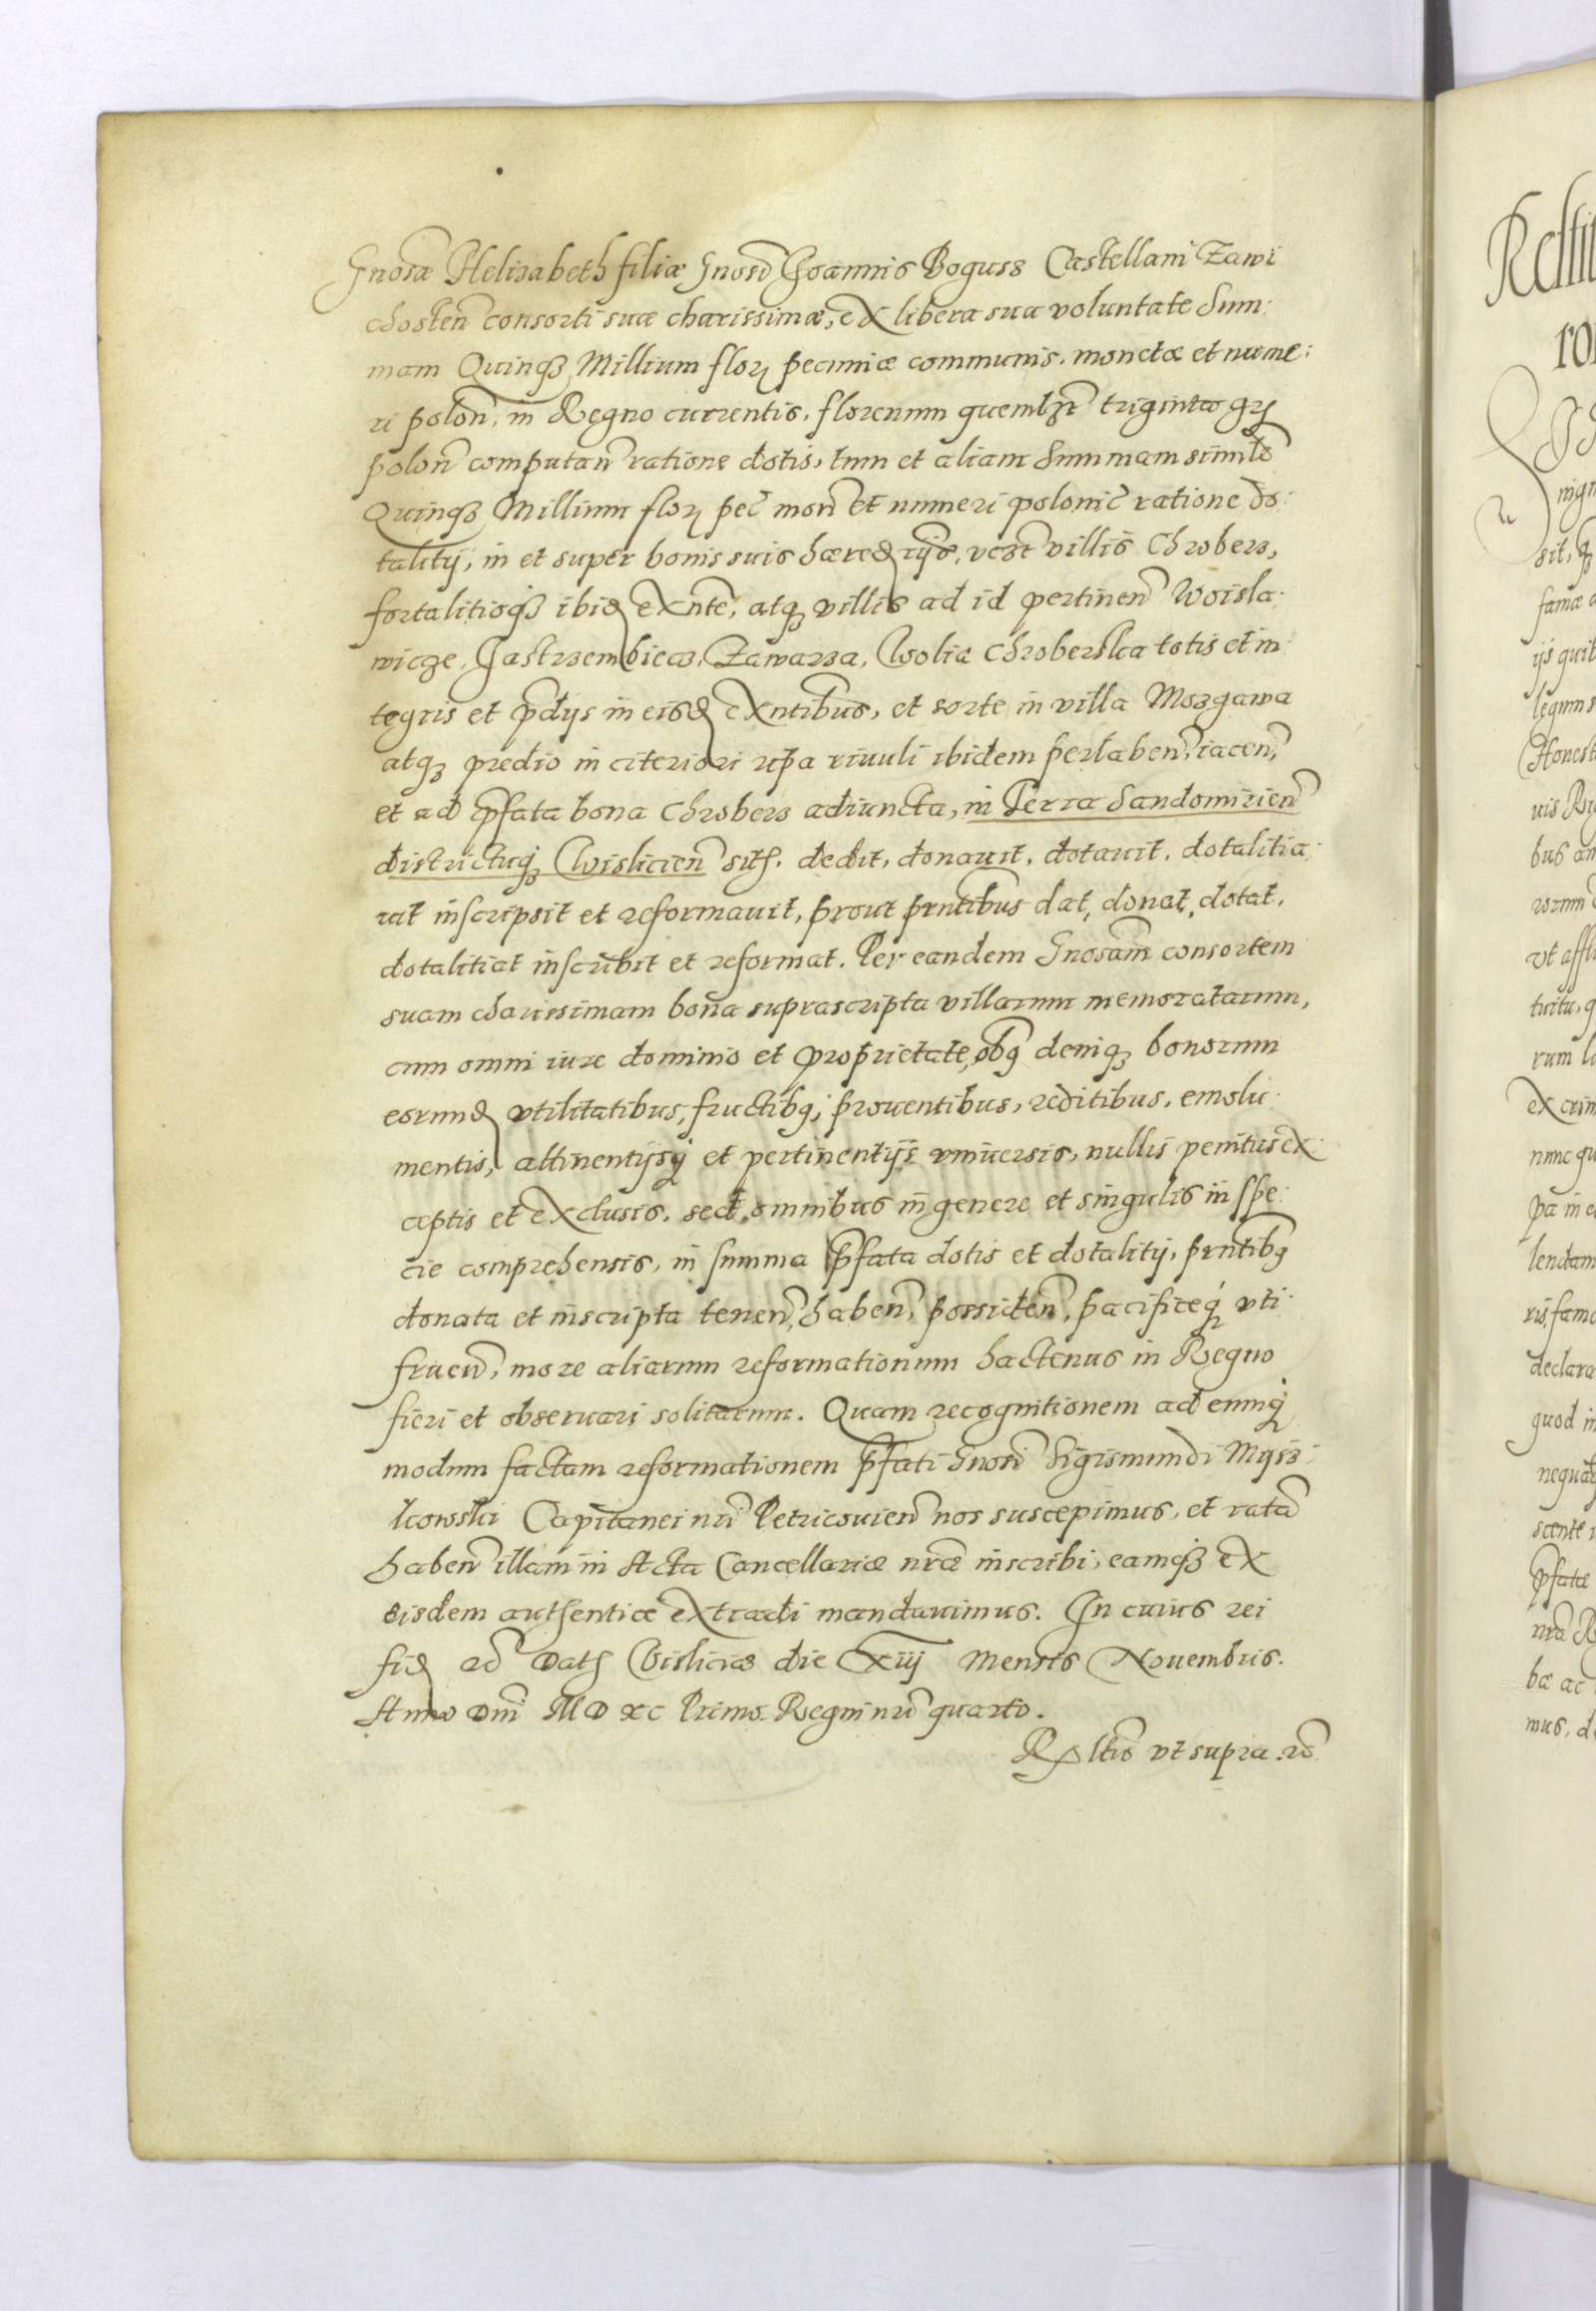 Gnosæ Helisabeth filiæ Gnosi Joannis Bogusz Castellani Zawi
chosten consorti suæ charissimæ, ex libera sua voluntate Sum:
mam Quinqȝ Millium floꝝ pecuniæ communis, monetæ et nume:
ri polon, in Regno currentis, florenum quemlȝt triginta grꝝ
polon computan ratione dotis, tum et aliam Summam simile
Quinqȝ Millium floꝝ pec mon et numeri polonic ratione do:
talitij, in et super bonis suis hæredrijs, vezt villis Chroberz,
fortalitioqȝ ibid exnte, atqȝ villis ad id pertinen Woisla:
wicze, Jastrzembiecz, Zawarza, Wolia Chroberska totis et in:
tegris et pdijs in eisd exntibus, et sorte in villa Mozgawa
atqȝ predio in citeriori ripa riuuli ibidem perlaben, iacen,
et ad pfata bona Chroberz adiuncta, in Terra Sandomirien
districtuqȝ Wislicien sith. dedit, donauit, dotauit, dotalitia:
uit inscripsit et reformauit, prout prntibus dat, donat, dotat,
dotalitiat inscribit et reformat. Per eandem Gnosam consortem
suam charissimam bona suprascripta villarum memoratarum,
cum omni iure dominio et proprietate, obq deniqȝ bonorum
eorumd vtilitatibus, fructibq, prouentibus, reditibus, emolu:
mentis, attinentijsq et pertinentijs vniuersis, nullis penitus ex:
ceptis et exclusis, sed omnibus in genere et singulis in spe:
cie comprehensis, in summa pfata dotis et dotalitij, prntibq
donata et inscripta tenen, haben, possiden, pacificeq vti
fruen, more aliarum reformationum hactenus in Regno
fieri et obseruari solitarum. Quam recognitionem ad eumq
modum factam reformationem pfati Gnosi Sigismundi Mysz:
kowski Capitanei nri Petricouien nos suscepimus, et rata
haben illam in Acta Cancellariæ nræ inscribi, eamqȝ ex
eisdem authenticæ extradi mandauimus. In cuius rei
fid rc Dath Visliciæ die XIIJ Mensis Nouembris.
Anno Dni M D XC Primo. Regni nri quarto.
Rltio vt supra. rc